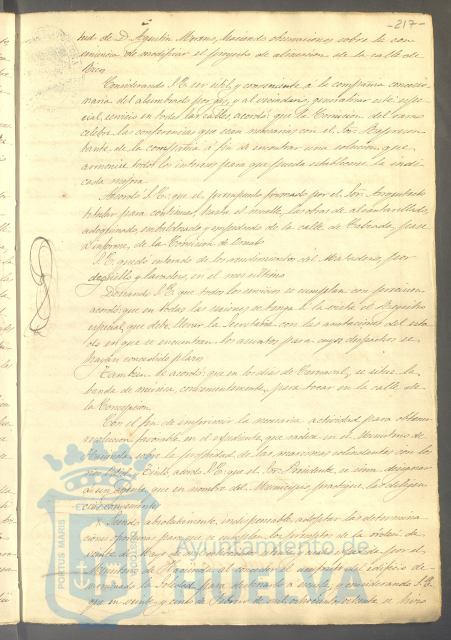 -217-
tud de D. Agustin Moreno, haciendo observaciones sobre la con
veniencia de modificar el proyecto de alineacion de la calle de
Considerando S.E. ser útil y conveniente á la compañia concesio
naria del alumbrado por gas, y al vecindario, generalizar este espe
cial servicio en todas las calles, acordó: que la Comision del ramo
celebre las conferencias que sean necesarias con el Sor. Represen
tante de la compañia á fin de encontrar una solucion que
armonice todos los intereses para que pueda establecerse la indi
cada mejora.
Acordó S.E. que el presupuesto formado por el Sor. Arquitecto
titular para continuar, hasta el muelle, las obras de alcantarillado,
adoquinado, embaldosado y empedrado de la calle de pase
á informe de la Comision de Ornato.
S.E. quedó enterado de los rendimientos del Matadero, por
degüello y lavadero, en el mes último.
Deseando S.E. que todos los servicios se cumplan con precision
acordó: que en todas las sesiones se tenga á la vista el Registro
especial, que debe llevar la Secretaria con las anotaciones del esta
do en que se encuentran los asuntos para cuyos despachos se
hayan concedido plazos.
Tambien se acordó: que en los dias de Carnaval, se situe la
banda de música, convenientemente, para tocar en la calle de
la Concepcion.
Con el fin de imprimir la necesaria actividad para obtener
resolucion favorable en el expediente, que radica en el Ministerio de
Hacienda, sobre la propiedad de las marismas colindantes con la
acordó S.E. que el Sor. Presidente se sirva designar
á un agente, que en nombre del Municipio practique las diligen
cias convenientes.
Siendo absolutamente indispensable, adoptar las determina
ciones oportunas para que se cumplan los preceptos de la orden de
veinte de Mayo de por el
Ministerio de Hacienda, al conceder el usufructo del edificio de
nominado la para destinarlo á y considerando S.E.
que en veinte y cinco de Febrero de mil ochocientos ochenta se hizo
PORTUS MARIS
Ayuntamiento de
HUELVA